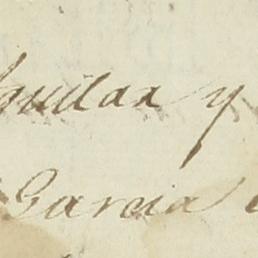 Aguilar y
Garcia